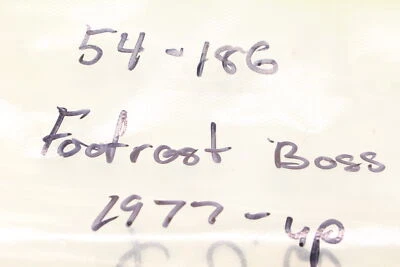 54-186
Footrest Boss
1977-up